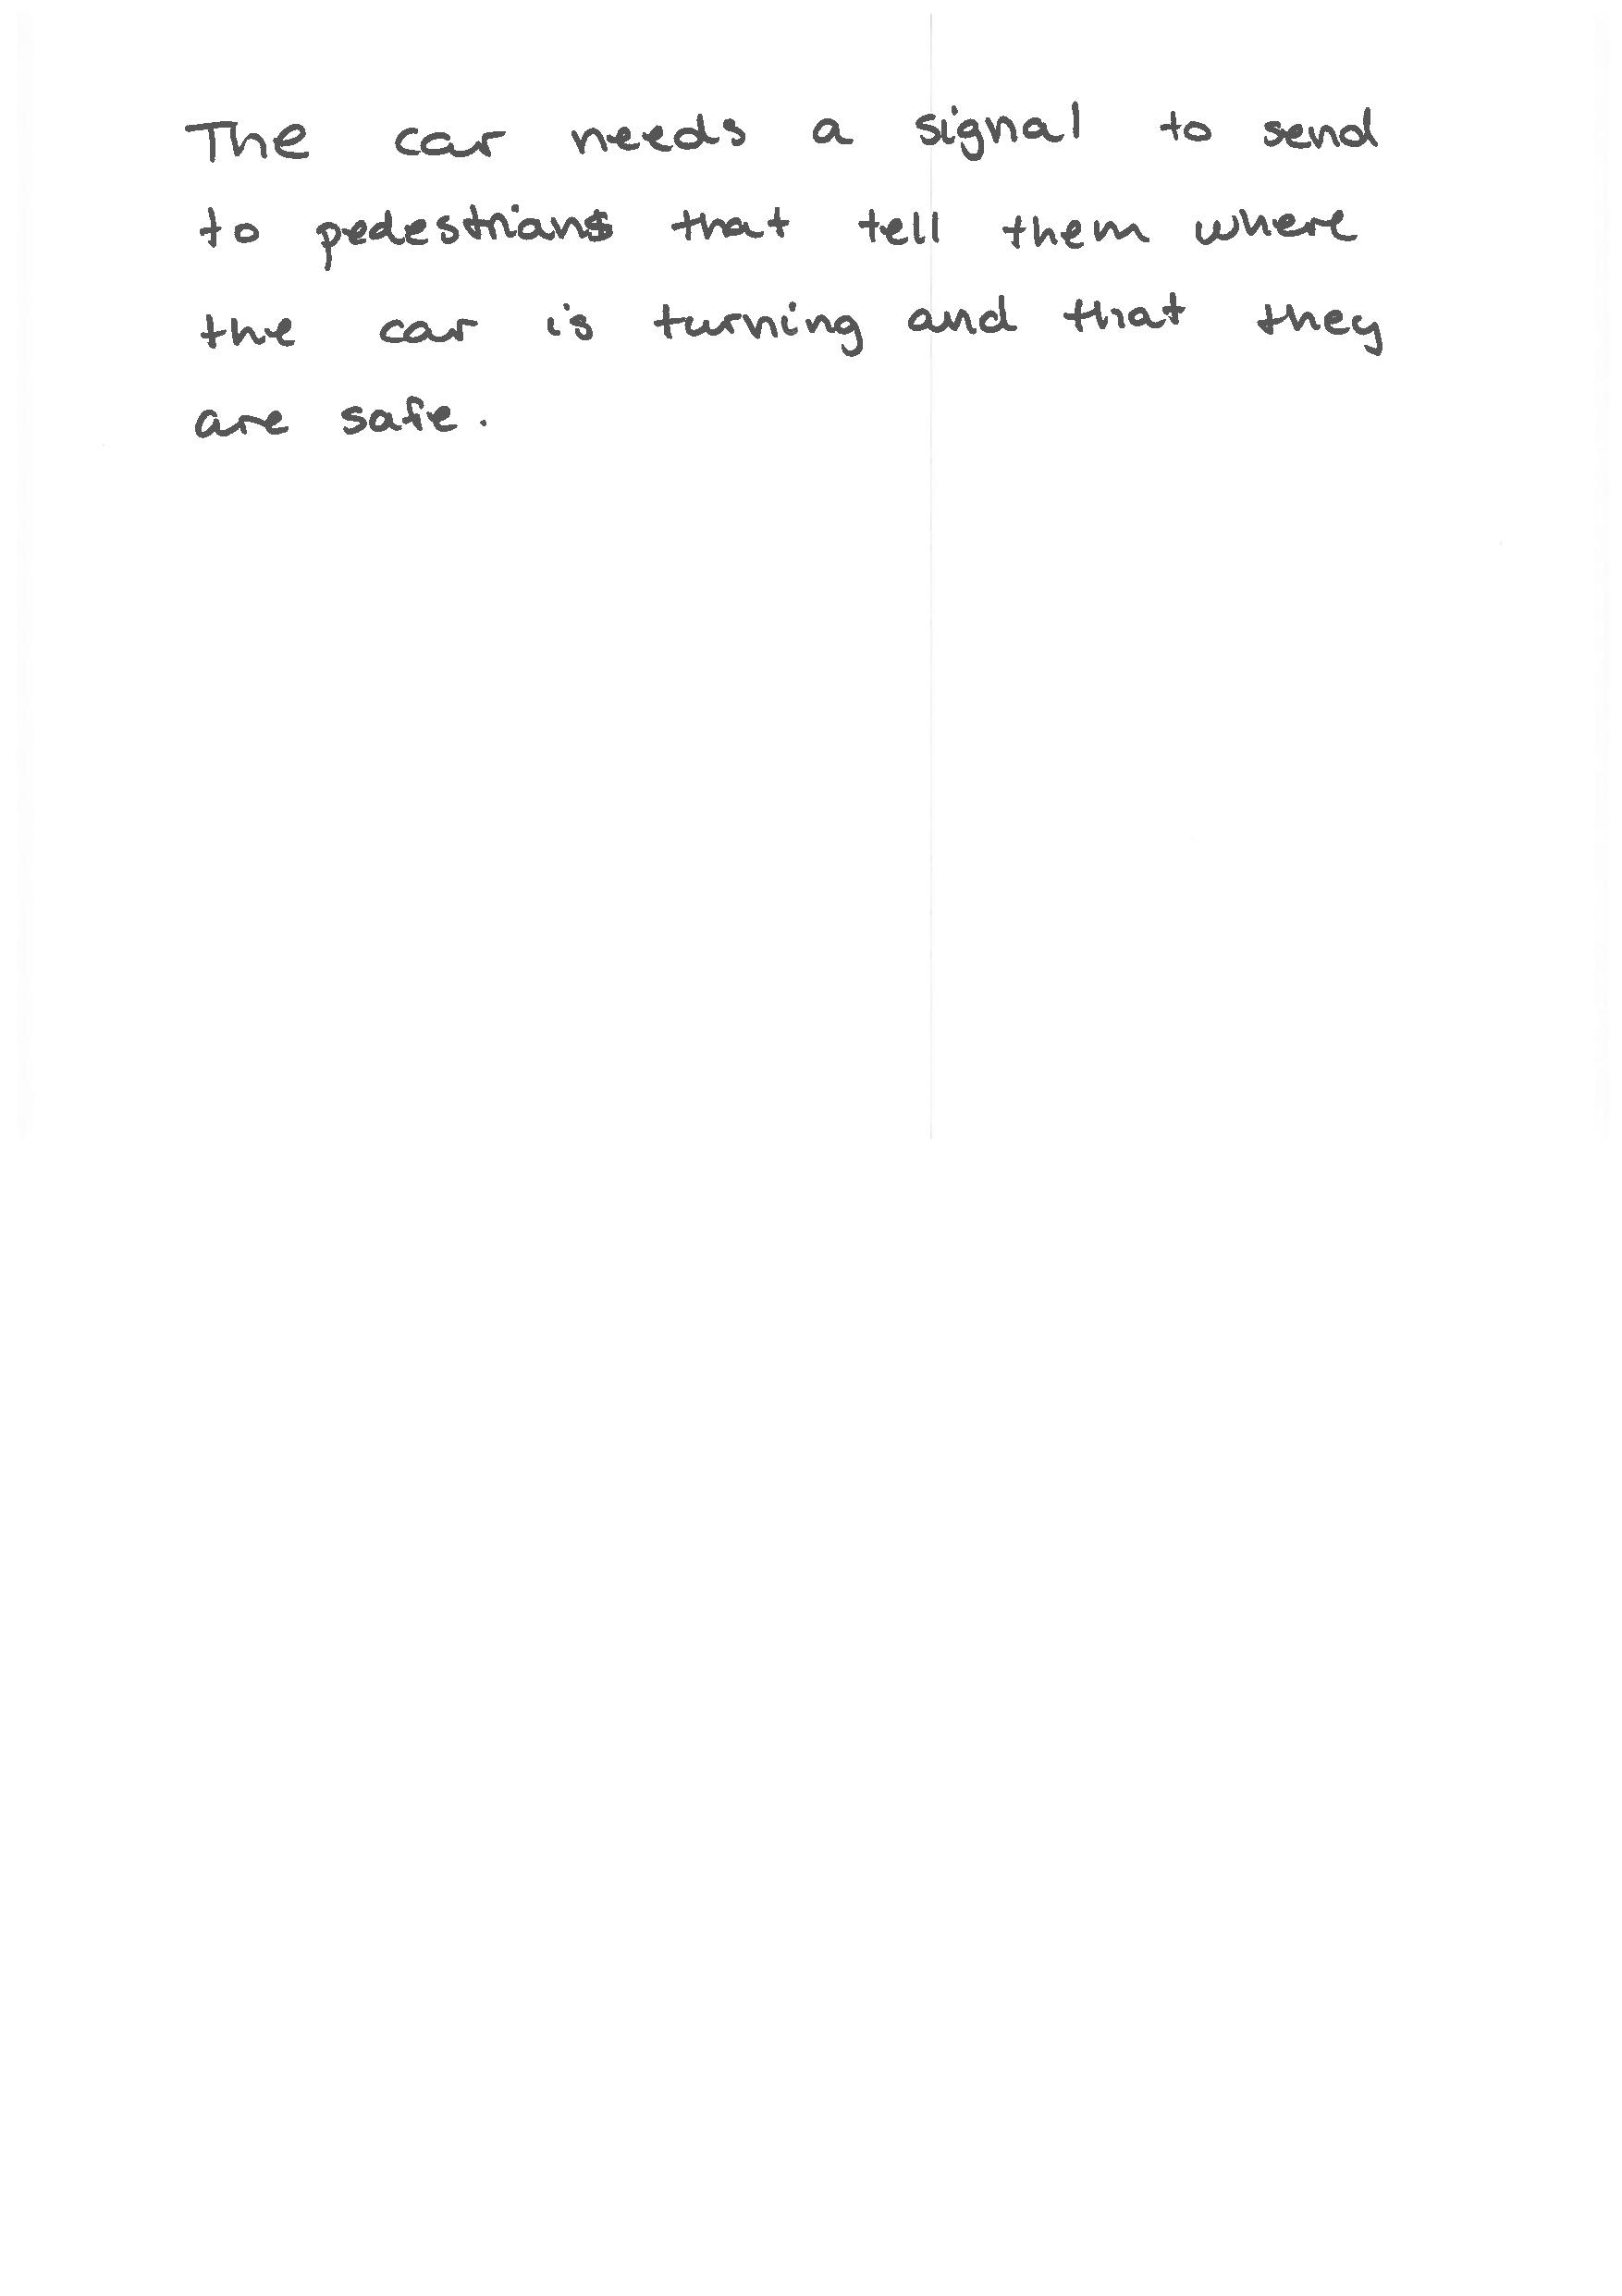 The car needs a signal to send
to pedestrians that tell them where
the car is turning and that they
are safe.